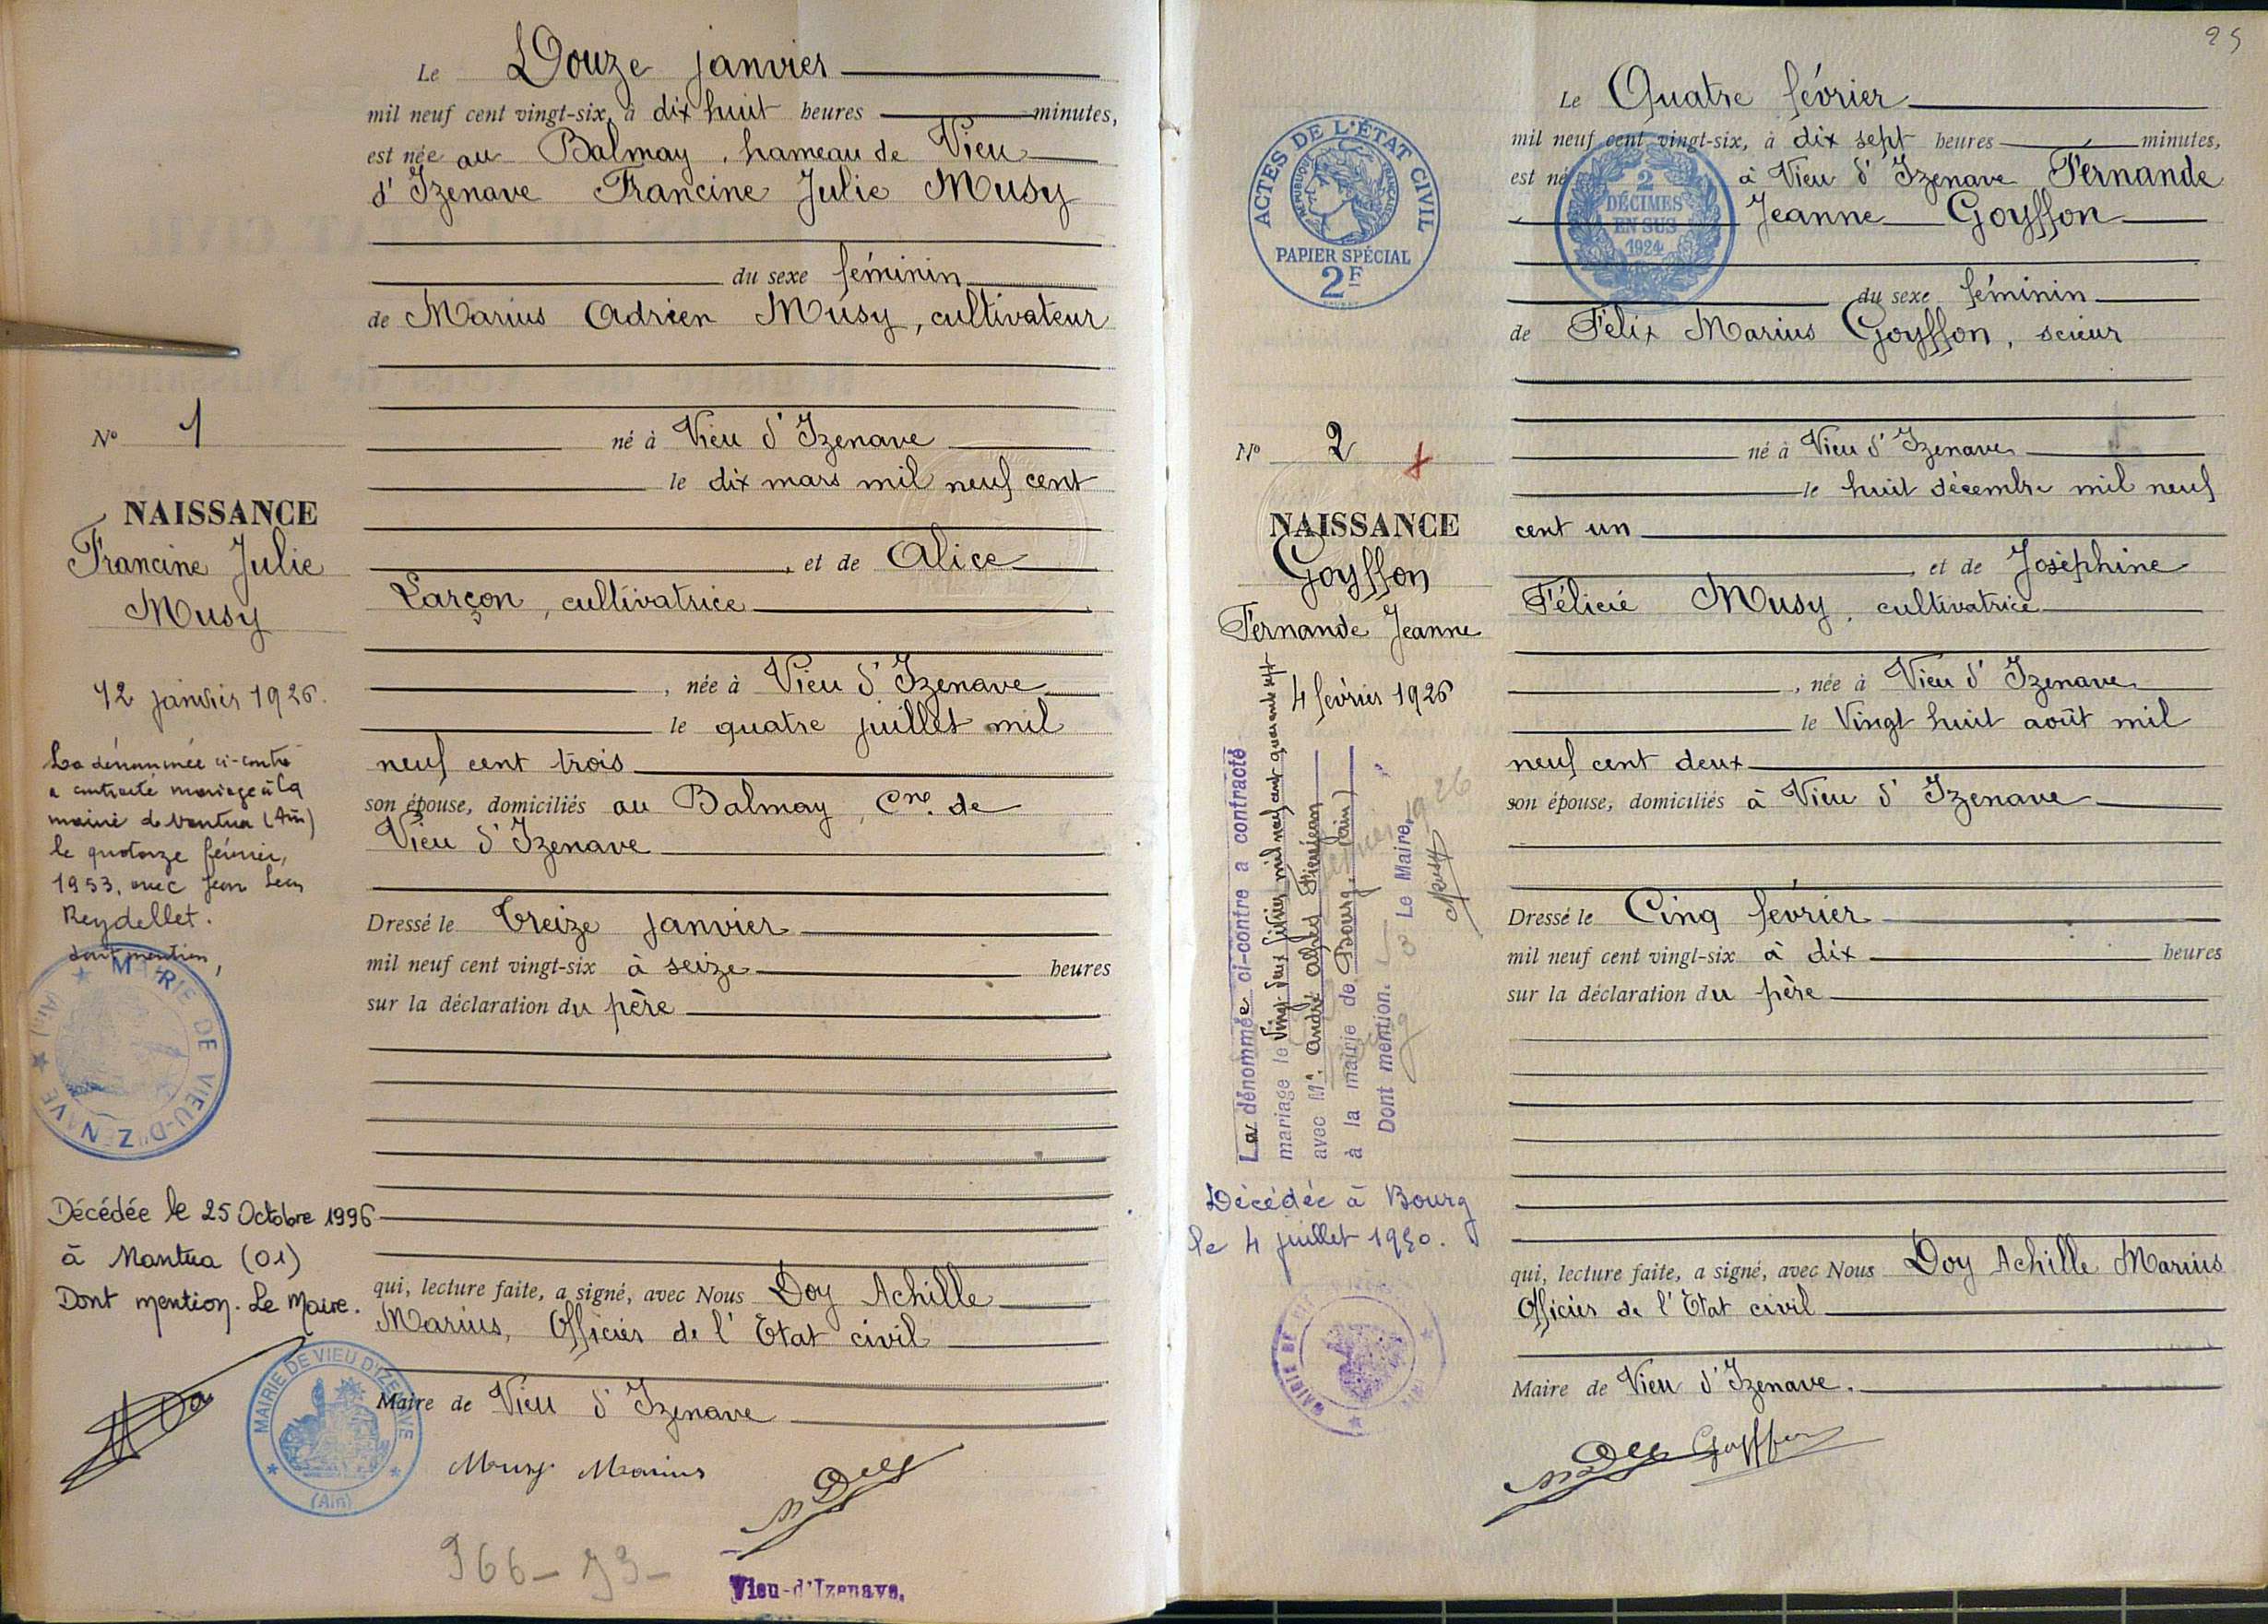 Le Douze janvier
mil neuf cent vingt-six, à dix huit heures minutes,
est née au Balmay, hameau de Vieu
d'Izenave Francine Julie Musy
du sexe féminin
de Marius Adrien Musy, cultivateur
né à Vieu d'Izenave
le dix mars mil neuf cent
, et de Alice
Larçon, cultivatrice
, née à Vieu d'Izenave
le quatre juillet mil
neuf cent trois
son épouse, domiciliés au Balmay, Cne. de
Vieu d'Izenave
Dressé le Treize janvier
mil neuf cent vingt-six à seize heures
sur la déclaration du père
qui, lecture faite, a signé, avec Nous Doy Achille
Marius, Officier de l'Etat civil
Maire de Vieu d'Izenave
Musy Marius
Doy
Vieu-d'Izenave.
No 1
NAISSANCE
Francine Julie
Musy
12 janvier 1926.
La dénommée ci-contre
a contracté mariage à la
mairie de Nantua (Ain)
le quatorze février,
1953, avec Jean Leon
Reydellet.
dont mention,
MAIRIE DE VIEU-D'IZENAVE (Ain)
Décédée le 25 Octobre 1996
à Nantua (01)
Dont mention. Le Maire.
MAIRIE DE VIEU D'IZENAVE
(Ain)
25
ACTES DE L'ÉTAT CIVIL
RÉPUBLIQUE FRANÇAISE
PAPIER SPÉCIAL
2F
2
DÉCIMES
EN SUS
1924
Le Quatre février
mil neuf cent vingt-six, à dix sept heures minutes,
est né à Vieu d'Izenave Fernande
Jeanne Goyffon
du sexe féminin
de Félix Marius Goyffon, scieur
né à Vieu d'Izenave
le huit décembre mil neuf
cent un
, et de Joséphine
Félicie Musy, cultivatrice
, née à Vieu d'Izenave
le Vingt huit août mil
neuf cent deux
son épouse, domiciliés à Vieu d'Izenave
Dressé le Cinq février
mil neuf cent vingt-six à dix heures
sur la déclaration du père
qui, lecture faite, a signé, avec Nous Doy Achille Marius
Officier de l'Etat civil
Maire de Vieu d'Izenave.
Doy Goyffon
No 2
NAISSANCE
Goyffon
Fernande Jeanne
4 février 1926
La dénommée ci-contre a contracté
mariage le Vingt deux février mil neuf cent quarante sept
avec Mr. André Alfred
à la mairie de Bourg, (Ain)
Dont mention. Le Maire,
Décédée à Bourg
le 4 juillet 1950.
MAIRIE DE